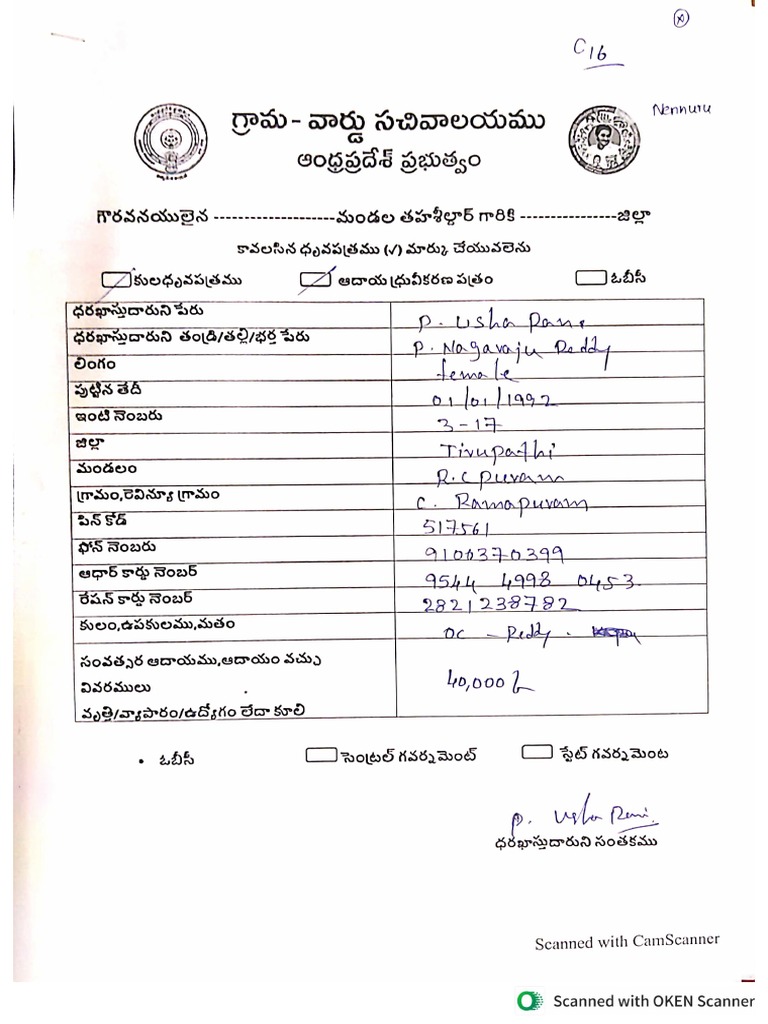 C16
Nennuru
గ్రామ - వార్డు సచివాలయము
ఆంధ్రప్రదేశ్ ప్రభుత్వం
గౌరవనయులైన --------------------మండల తహశీల్దార్ గారికి ----------------జిల్లా
కావలసిన ధృవపత్రము (√) మార్కు చేయువలెను
కులధృవపత్రము ఆదాయ ధ్రువీకరణ పత్రం ఓబీసీ
ధరఖాస్తుదారుని పేరు P. Usha Rani
ధరఖాస్తుదారుని తండ్రి/తల్లి/భర్త పేరు P. Nagaraju Reddy
లింగం female
పుట్టిన తేదీ 01/01/1992
ఇంటి నెంబరు 3-17
జిల్లా Tirupathi
మండలం R.C puram
గ్రామం,రెవిన్యూ గ్రామం C. Ramapuram
పిన్ కోడ్ 517561
ఫోన్ నెంబరు 9100370399
ఆధార్ కార్డు నెంబర్ 9544 4998 0453
రేషన్ కార్డు నెంబర్ 2821238782
కులం,ఉపకులము,మతం OC - Reddy.
సంవత్సర ఆదాయము,ఆదాయం వచ్చు
వివరములు 40,000
వృత్తి/వ్యాపారం/ఉద్యోగం లేదా కూలి
• ఓబీసీ సెంట్రల్ గవర్నమెంట్ స్టేట్ గవర్నమెంట
P. Usha Rani.
ధరఖాస్తుదారుని సంతకము
Scanned with CamScanner
Scanned with OKEN Scanner